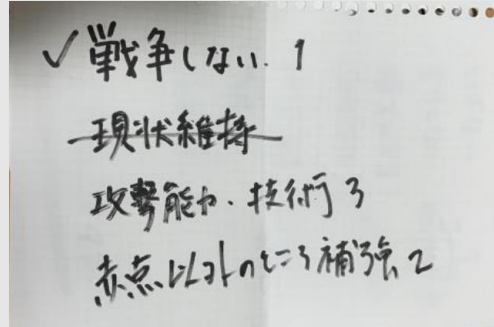 ✓戦争しない. 1
現状維持
攻撃能力・技術 3
赤点以外のところ補強 2